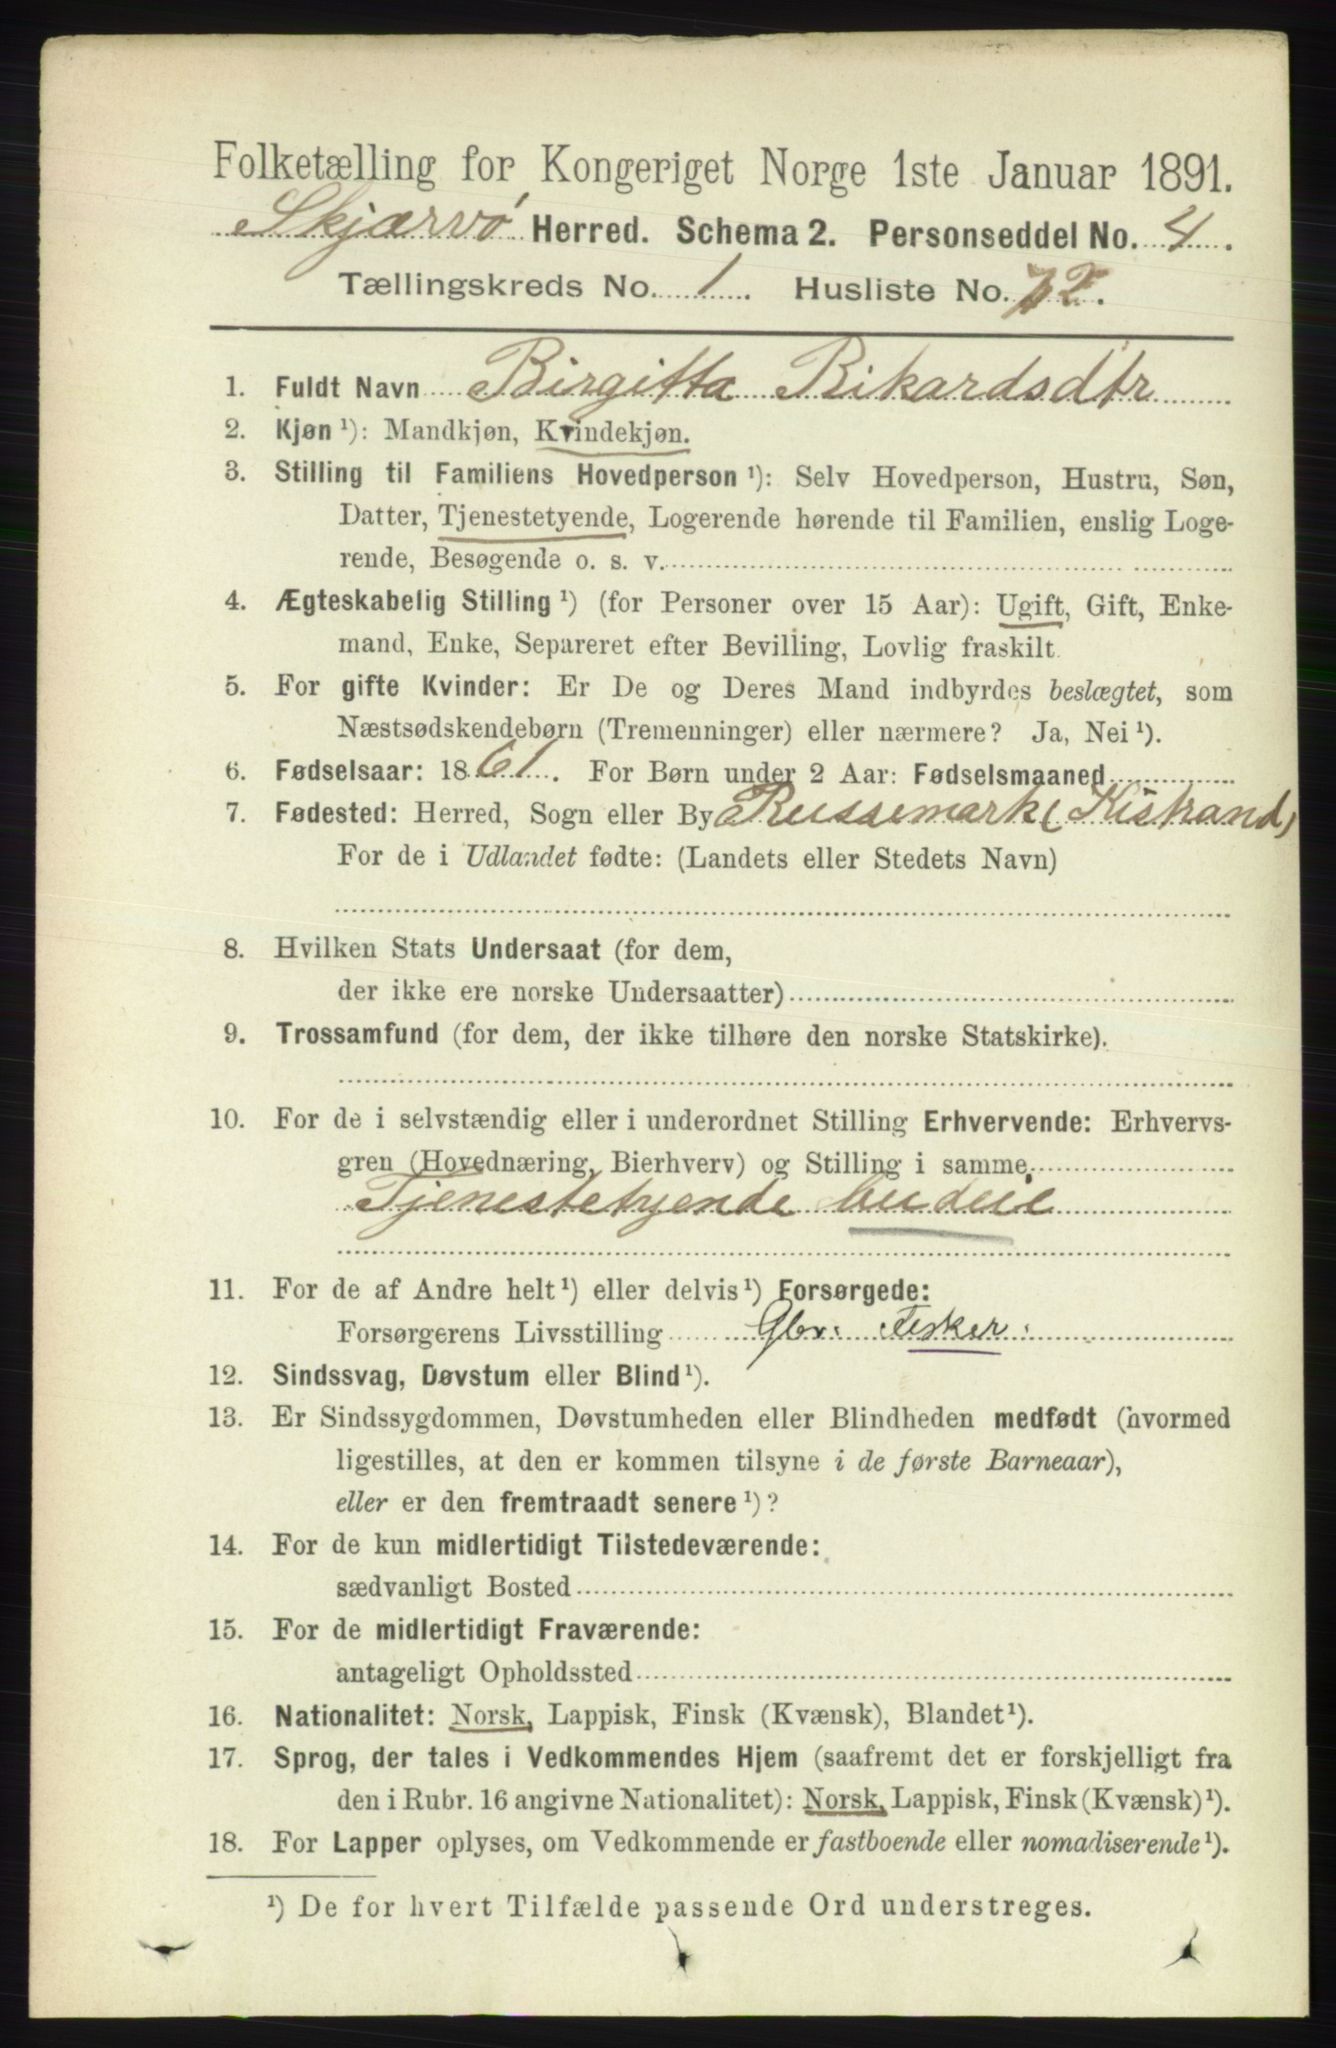 Folketælling for Kongeriget Norge 1ste Januar 1891.
Skjærvø Herred. Schema 2. Personseddel No. 4.
Tællingskreds No. 1. Husliste No. 12.
1. Fuldt Navn Birgitta Rikardsdtr
2. Kjøn ¹): Mandkjøn, Kvindekjøn.
3. Stilling til Familiens Hovedperson ¹): Selv Hovedperson, Hustru, Søn,
Datter, Tjenestetyende, Logerende hørende til Familien, enslig Loge-
rende, Besøgende o. s. v.
4. Ægteskabelig Stilling ¹) (for Personer over 15 Aar): Ugift, Gift, Enke-
mand, Enke, Separeret efter Bevilling, Lovlig fraskilt.
5. For gifte Kvinder: Er De og Deres Mand indbyrdes beslægtet, som
Næstsødskendebørn (Tremenninger) eller nærmere? Ja, Nei ¹).
6. Fødselsaar: 1861. For Børn under 2 Aar: Fødselsmaaned
7. Fødested: Herred, Sogn eller By Russemark (Kistrand)
For de i Udlandet fødte: (Landets eller Stedets Navn)
8. Hvilken Stats Undersaat (for dem,
der ikke ere norske Undersaatter)
9. Trossamfund (for dem, der ikke tilhøre den norske Statskirke).
10. For de i selvstændig eller i underordnet Stilling Erhvervende: Erhvervs-
gren (Hovednæring, Bierhverv) og Stilling i samme
Tjenestetyende budeie
11. For de af Andre helt ¹) eller delvis ¹) Forsørgede:
Forsørgerens Livsstilling Gbr. Fisker.
12. Sindssvag, Døvstum eller Blind ¹).
13. Er Sindssygdommen, Døvstumheden eller Blindheden medfødt (hvormed
ligestilles, at den er kommen tilsyne i de første Barneaar),
eller er den fremtraadt senere ¹)?
14. For de kun midlertidigt Tilstedeværende:
sædvanligt Bosted
15. For de midlertidigt Fraværende:
antageligt Opholdssted
16. Nationalitet: Norsk, Lappisk, Finsk (Kvænsk), Blandet ¹).
17. Sprog, der tales i Vedkommendes Hjem (saafremt det er forskjelligt fra
den i Rubr. 16 angivne Nationalitet): Norsk, Lappisk, Finsk (Kvænsk) ¹).
18. For Lapper oplyses, om Vedkommende er fastboende eller nomadiserende ¹).
¹) De for hvert Tilfælde passende Ord understreges.